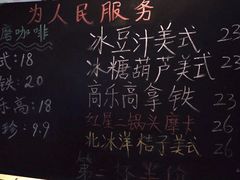 为人民服务
磨咖啡
式:18
铁:20
乐高:18
珍:9.9
冰豆汁美式 23
冰糖葫芦美式 23
高乐高拿铁 23
红星二锅头摩卡 26
北冰洋桔子美式 26
第二杯半价